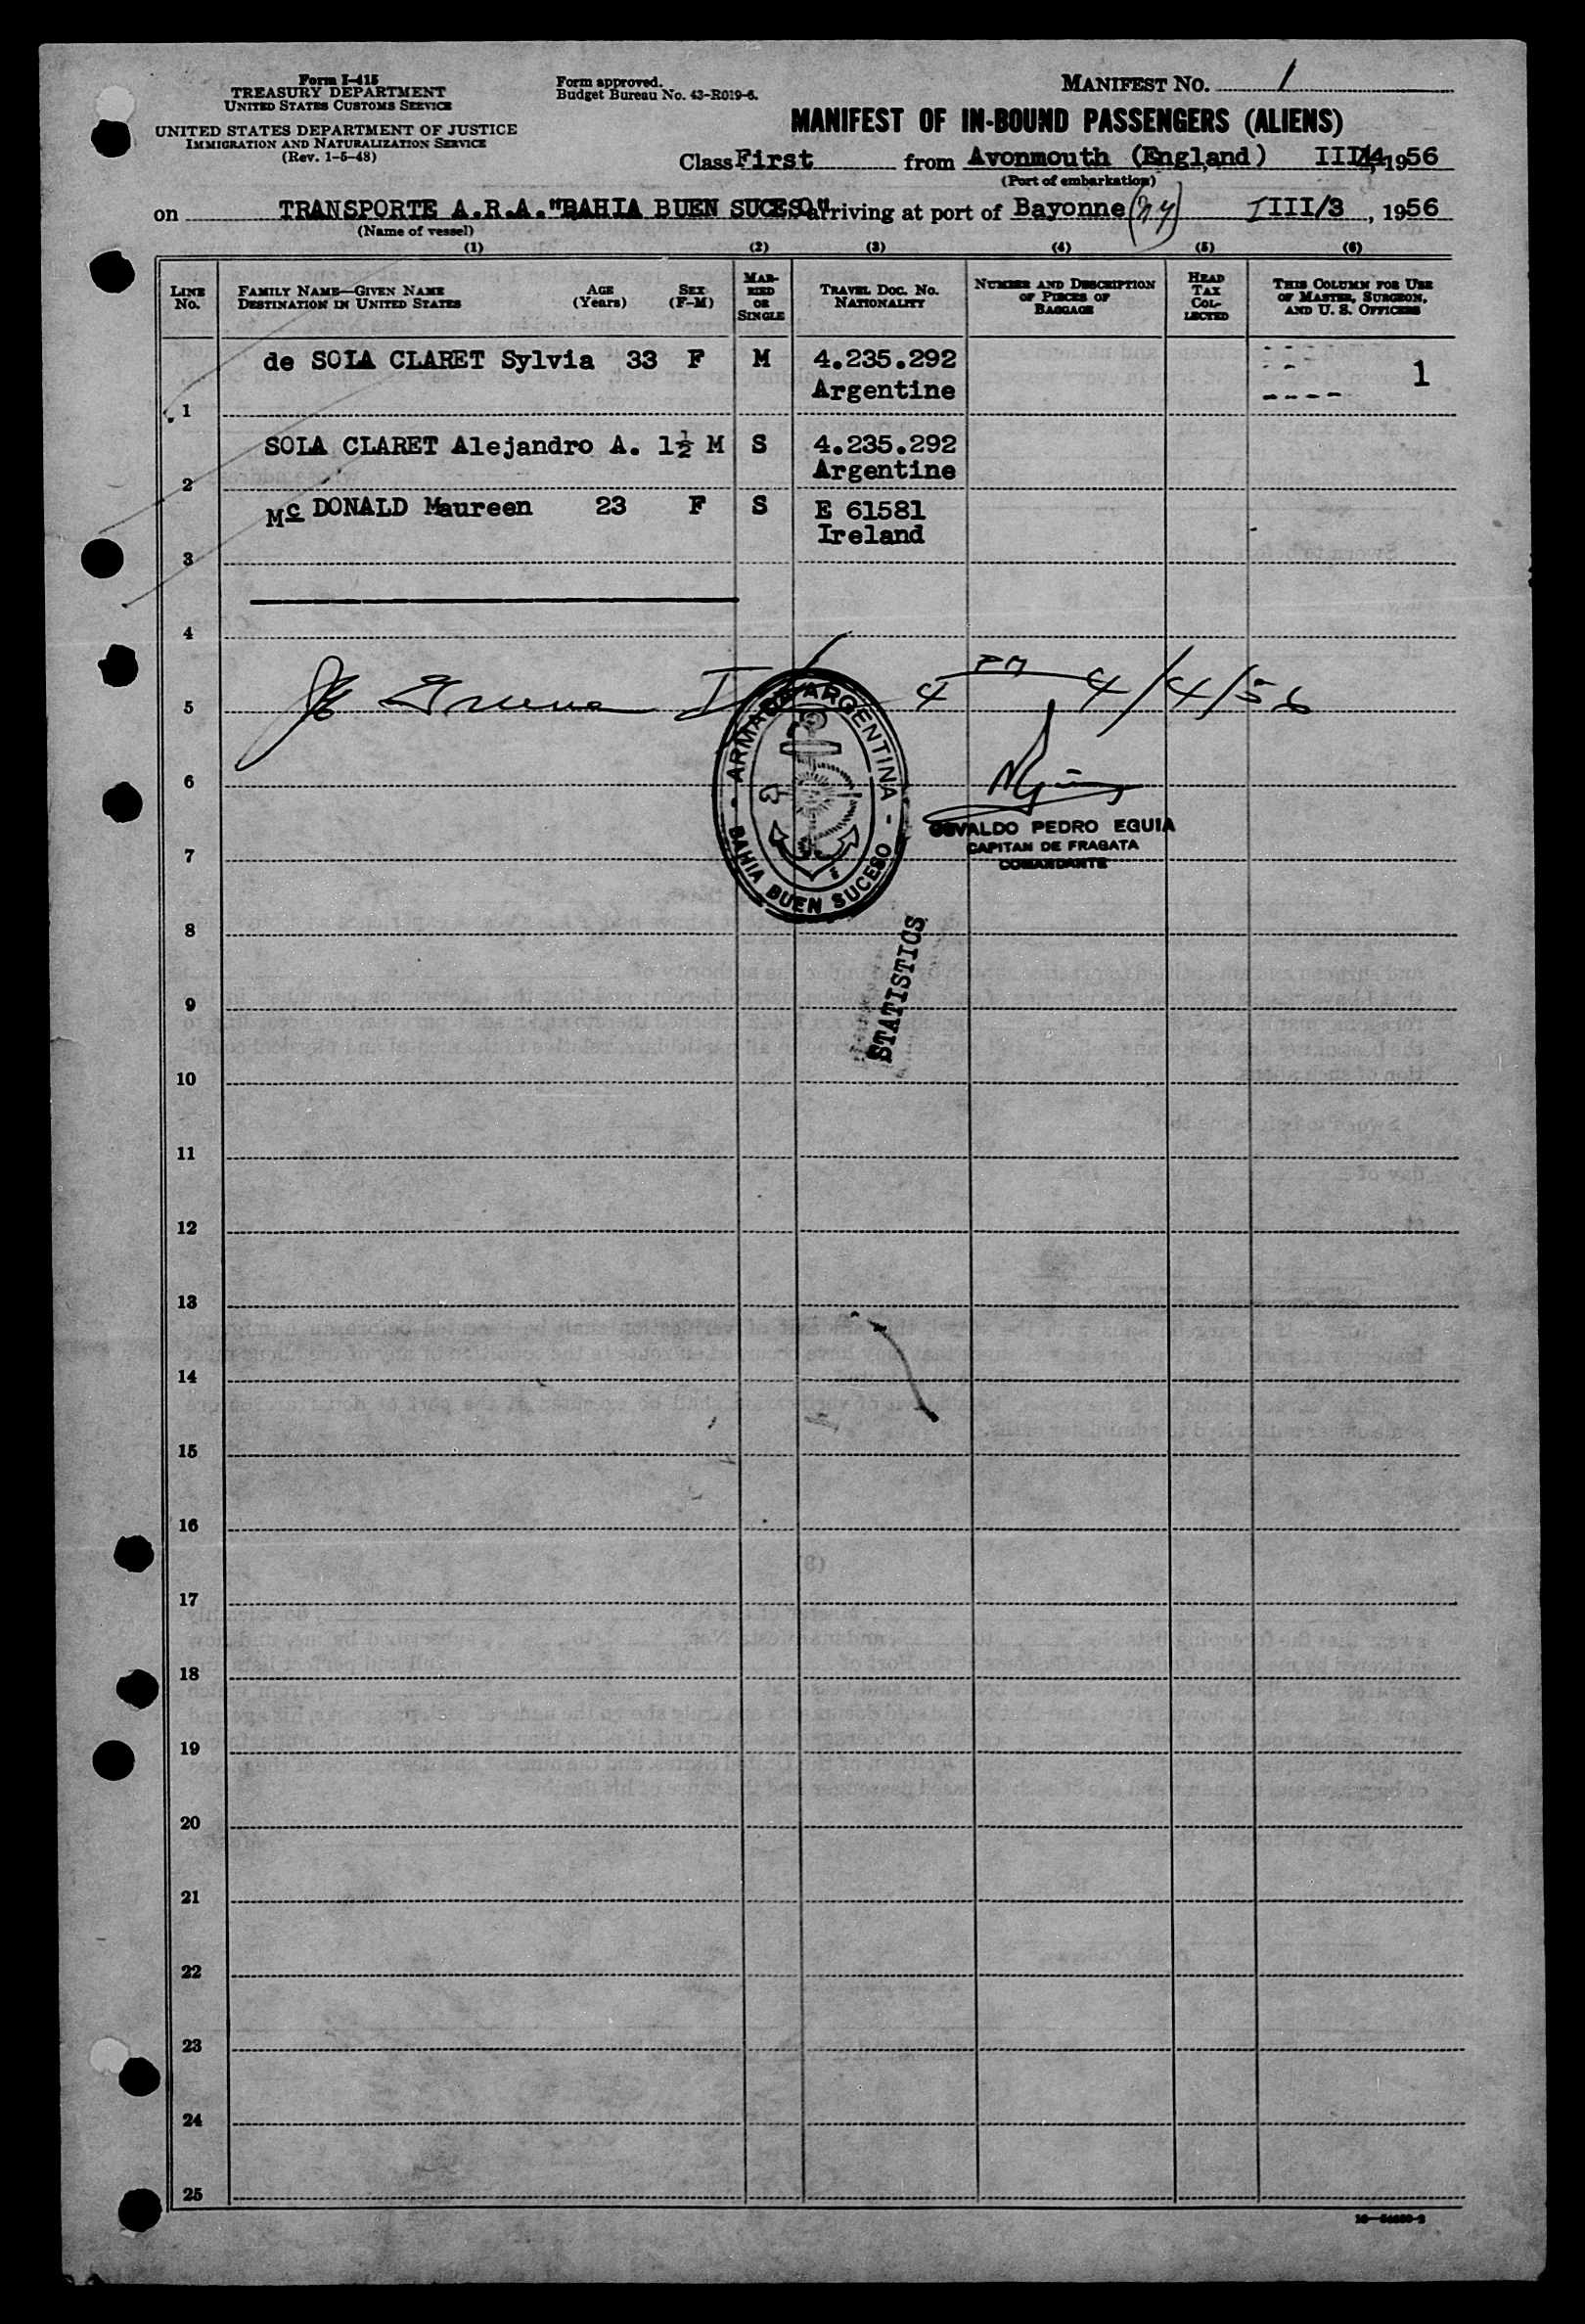 Form I-415
TREASURY DEPARTMENT
UNITED STATES CUSTOMS SERVICE
UNITED STATES DEPARTMENT OF JUSTICE
IMMIGRATION AND NATURALIZATION SERVICE
(Rev. 1-5-48)
Form approved.
Budget Bureau No. 43-R019-6.
MANIFEST NO. 1
MANIFEST OF IN-BOUND PASSENGERS (ALIENS)
Class First from Avonmouth (England) , 1956
(Port of embarkation)
on TRANSPORTE A.R.A."BAHIA BUEN SUCESO" arriving at port of Bayonne (NY) IIII/3, 1956
(Name of vessel)
(1) (2) (3) (4) (5) (6)
LINE No. FAMILY NAME—GIVEN NAME DESTINATION IN UNITED STATES AGE (Years) SEX (F-M) MARRIED OR SINGLE TRAVEL DOC. NO. NATIONALITY NUMBER AND DESCRIPTION OF PIECES OF BAGGAGE HEAD TAX COLLECTED THIS COLUMN FOR USE OF MASTER, SURGEON, AND U. S. OFFICERS
de SOLA CLARET Sylvia 33 F M 4.235.292 1
Argentine
1
SOLA CLARET Alejandro A. 1½ M S 4.235.292
Argentine
2
Mc DONALD Maureen 23 F S E 61581
Ireland
3
4
4 PM 4/4/56
5
ARMADA ARGENTINA
- BAHIA BUEN SUCESO -
6
OSVALDO PEDRO EGUIA
CAPITAN DE FRAGATA
COMANDANTE
7
8
STATISTICS
9
10
11
12
13
14
15
16
17
18
19
20
21
22
23
24
25